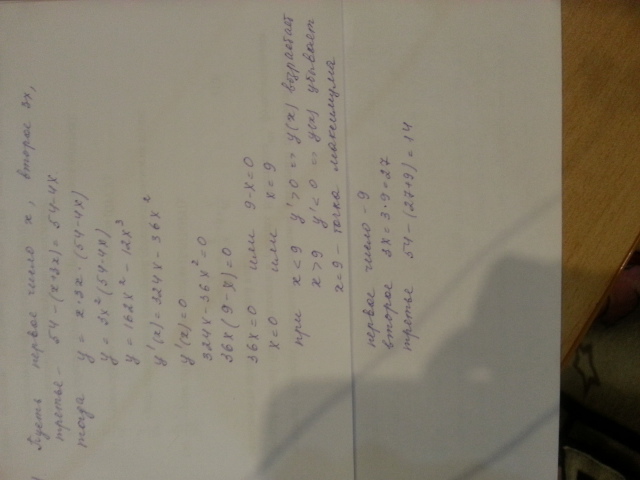 Пусть первое число x, второе 3x,
третье - 54-(x+3x) = 54-4x
тогда y = x·3x·(54-4x)
y = 3x²(54-4x)
y = 162x² - 12x³
y'(x) = 324x - 36x²
y'(x) = 0
324x - 36x² = 0
36x(9-x) = 0
36x = 0 или 9-x = 0
x = 0 или x = 9
при x < 9 y' > 0 => y(x) возрастает
x > 9 y' < 0 => y(x) убывает
x = 9 - точка максимума
первое число - 9
второе 3x = 3·9 = 27
третье 54-(27+9) = 14